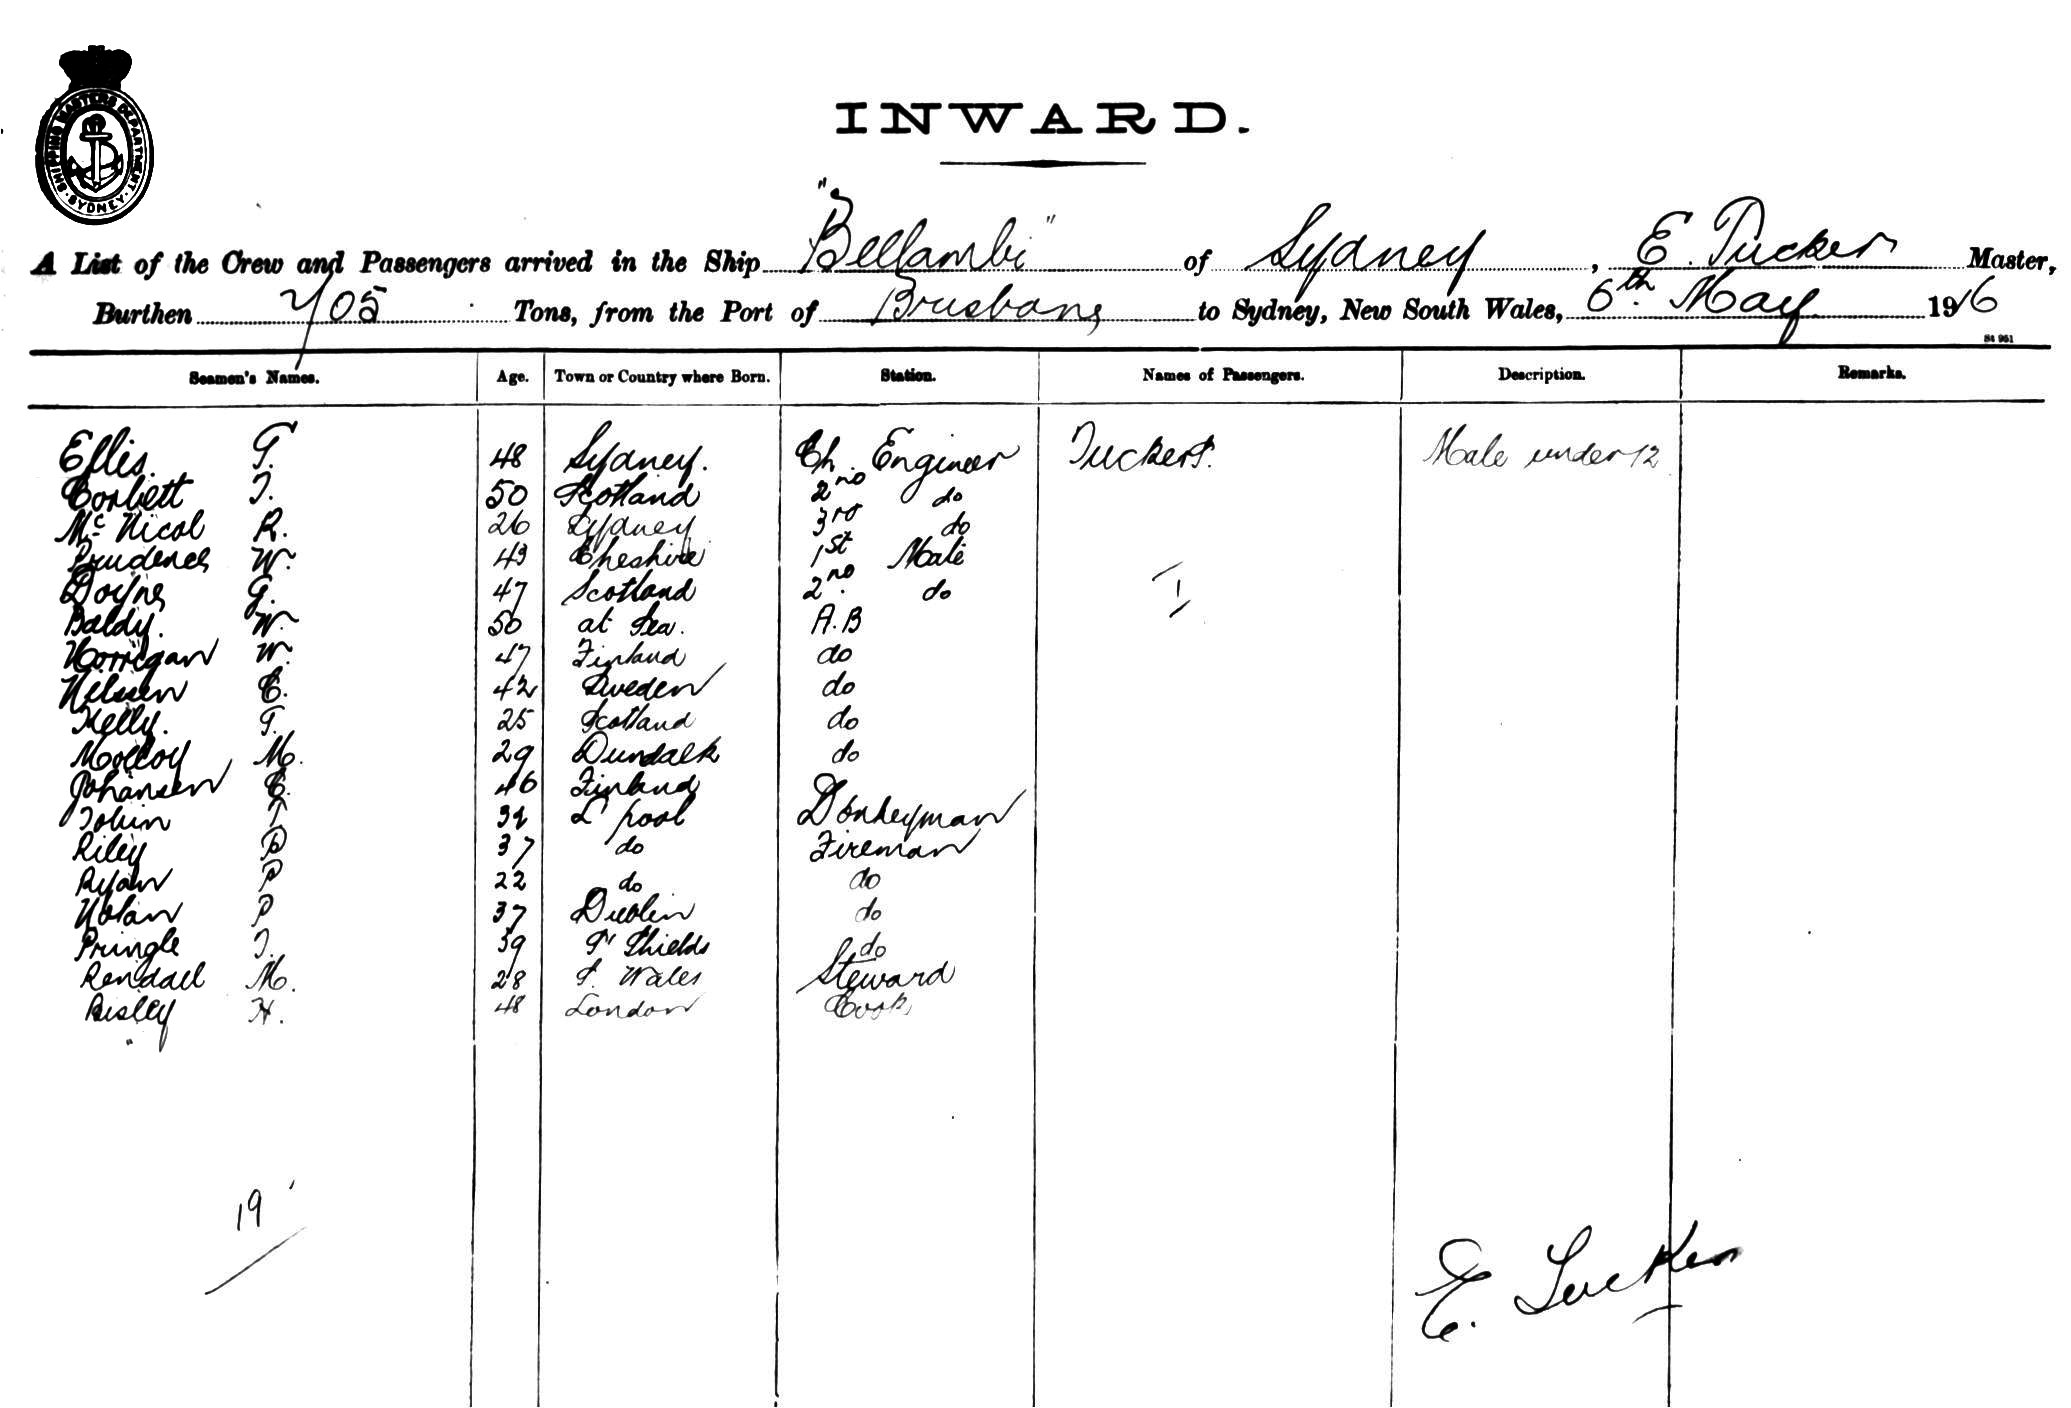 SHIPPING MASTERS DEPARTMENT. SYDNEY.
INWARD.
A List of the Crew and Passengers arrived in the Ship "Bellambi" of Sydney, E. Tucker Master,
Burthen 705 Tons, from the Port of Brisbane to Sydney, New South Wales, 6th May 1916
St 951
Seamen's Names. Age. Town or Country where Born. Station. Names of Passengers. Description. Remarks.
Ellis. T. 48 Sydney. Ch. Engineer Tucker Male under 12
Corbett T. 50 Scotland 2nd do
McNicol R. 26 Sydney 3rd do
Prudence W. 43 Cheshire 1st Mate
Doyne G. 47 Scotland 2nd do
1
Baldy. W. 50 at Sea. A.B
Horrigan W. 47 Finland do
Nilssen C. 42 Sweden do
Kelly. T. 25 Scotland do
Molloy M. 29 Dundalk do
Johansen C. 46 Finland
Tobin T 32 L'pool Donkeyman
Riley P 37 do Fireman
Ryan P 22 do do
Nolan P 37 Dublin do
Pringle T. 39 Shields do
Rendall M. 28 S. Wales Steward
Bisley H. 48 London Cook
19
E. Tucker